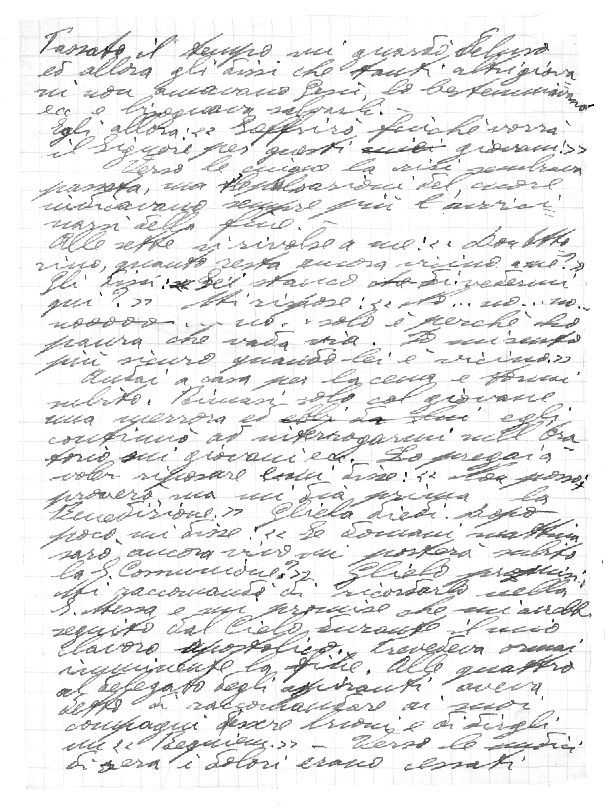 Passato il tempo mi guardò deluso
ed allora gli dissi che tanti altri giova
ni non amavano Gesù, lo bestemmiavano
ecc e bisognava salvarli. -
Egli allora: << Soffrirò, finché vorrà
il Signore per questi giovani >>
Verso le cinque la crisi sembrava
passata, ma le pulsazioni del cuore
indicavano sempre più l'avvici=
narsi della fine. -
Alle sette si rivolse a me: << Don Otto
rino, quanto resta ancora vicino a me? >>
Gli dissi: << Sei stanco di vedermi
qui? >> Mi rispose: << No... no... no...
nooooo... no... solo è perché ho
paura che vada via. Io mi sento
più sicuro quando lei è vicino >>
Andai a casa per la cena e tornai
subito. Rimasi solo col giovane
una mezzora ed egli
continuò ad interrogarmi sull'Ora
torio sui giovani ecc. Lo pregai a
voler riposare e mi disse: << Non posso;
proverò ma mi dia prima la
Benedizione. >> Gliela diedi. Dopo
poco mi disse: << Se domani mattina
sarò ancora vivo mi porterà subito
la S. Comunione? >> Glielo promisi.
Mi raccomandò di ricordarlo nella
S. Messa e mi promise che mi avrebbe
seguito dal Cielo durante il mio
lavoro apostolico. Prevedeva ormai
imminente la fine. Alle quattro
al delegato degli aspiranti aveva
detto di raccomandare ai suoi
compagni d'essere buoni e di dirgli
un << Requiem >> - Verso le undici
di sera i dolori erano cessati